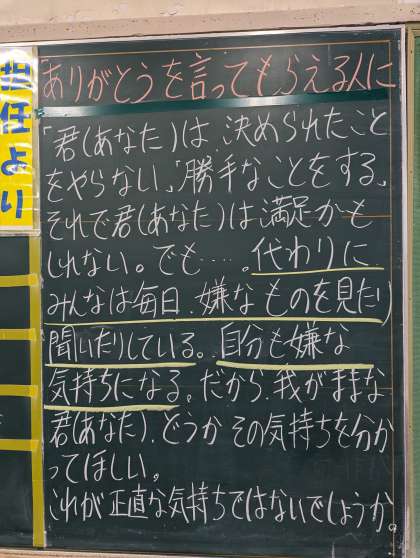 担任より
「ありがとうを言ってもらえる人に
「君(あなた)は、決められたこと
をやらない。」「勝手なことをする。」
それで君(あなた)は満足かも
しれない。でも……。代わりに
みんなは毎日、嫌なものを見たり
聞いたりしている。自分も嫌な
気持ちになる。だから、我がままな
君(あなた)、どうかその気持ちを分か
ってほしい。
これが正直な気持ちではないでしょうか。